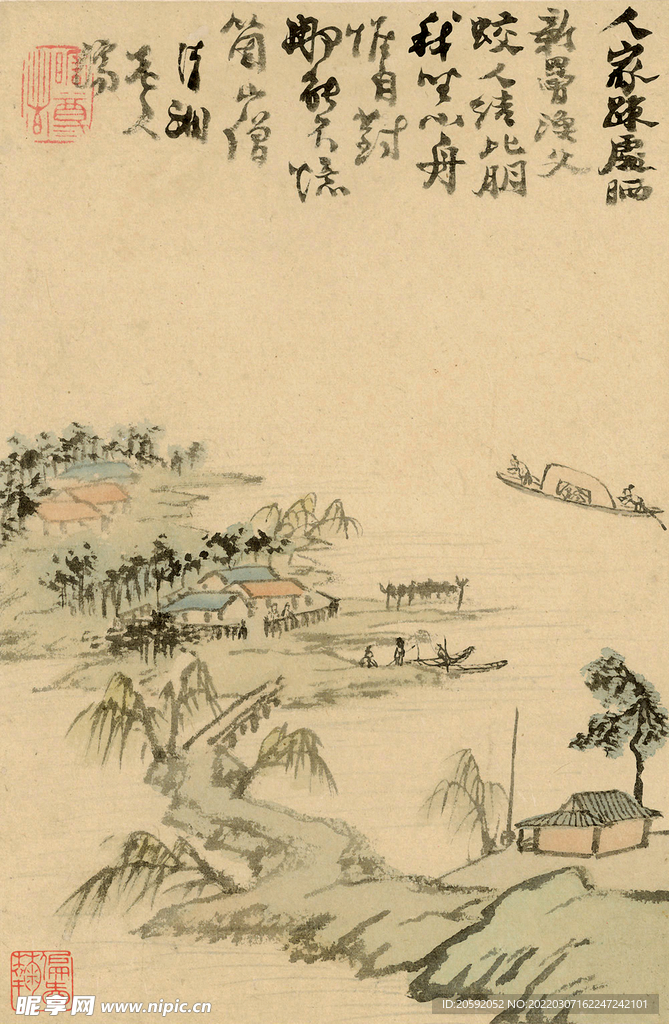 人家疎處晒
新罾漁父
蛟人結比朋
我坐小舟
惟自對
那能不憶
箇山僧
清湘
老人
濟
昵享网 www.nipic.cn
ID:20592052 NO:20220307162247242101